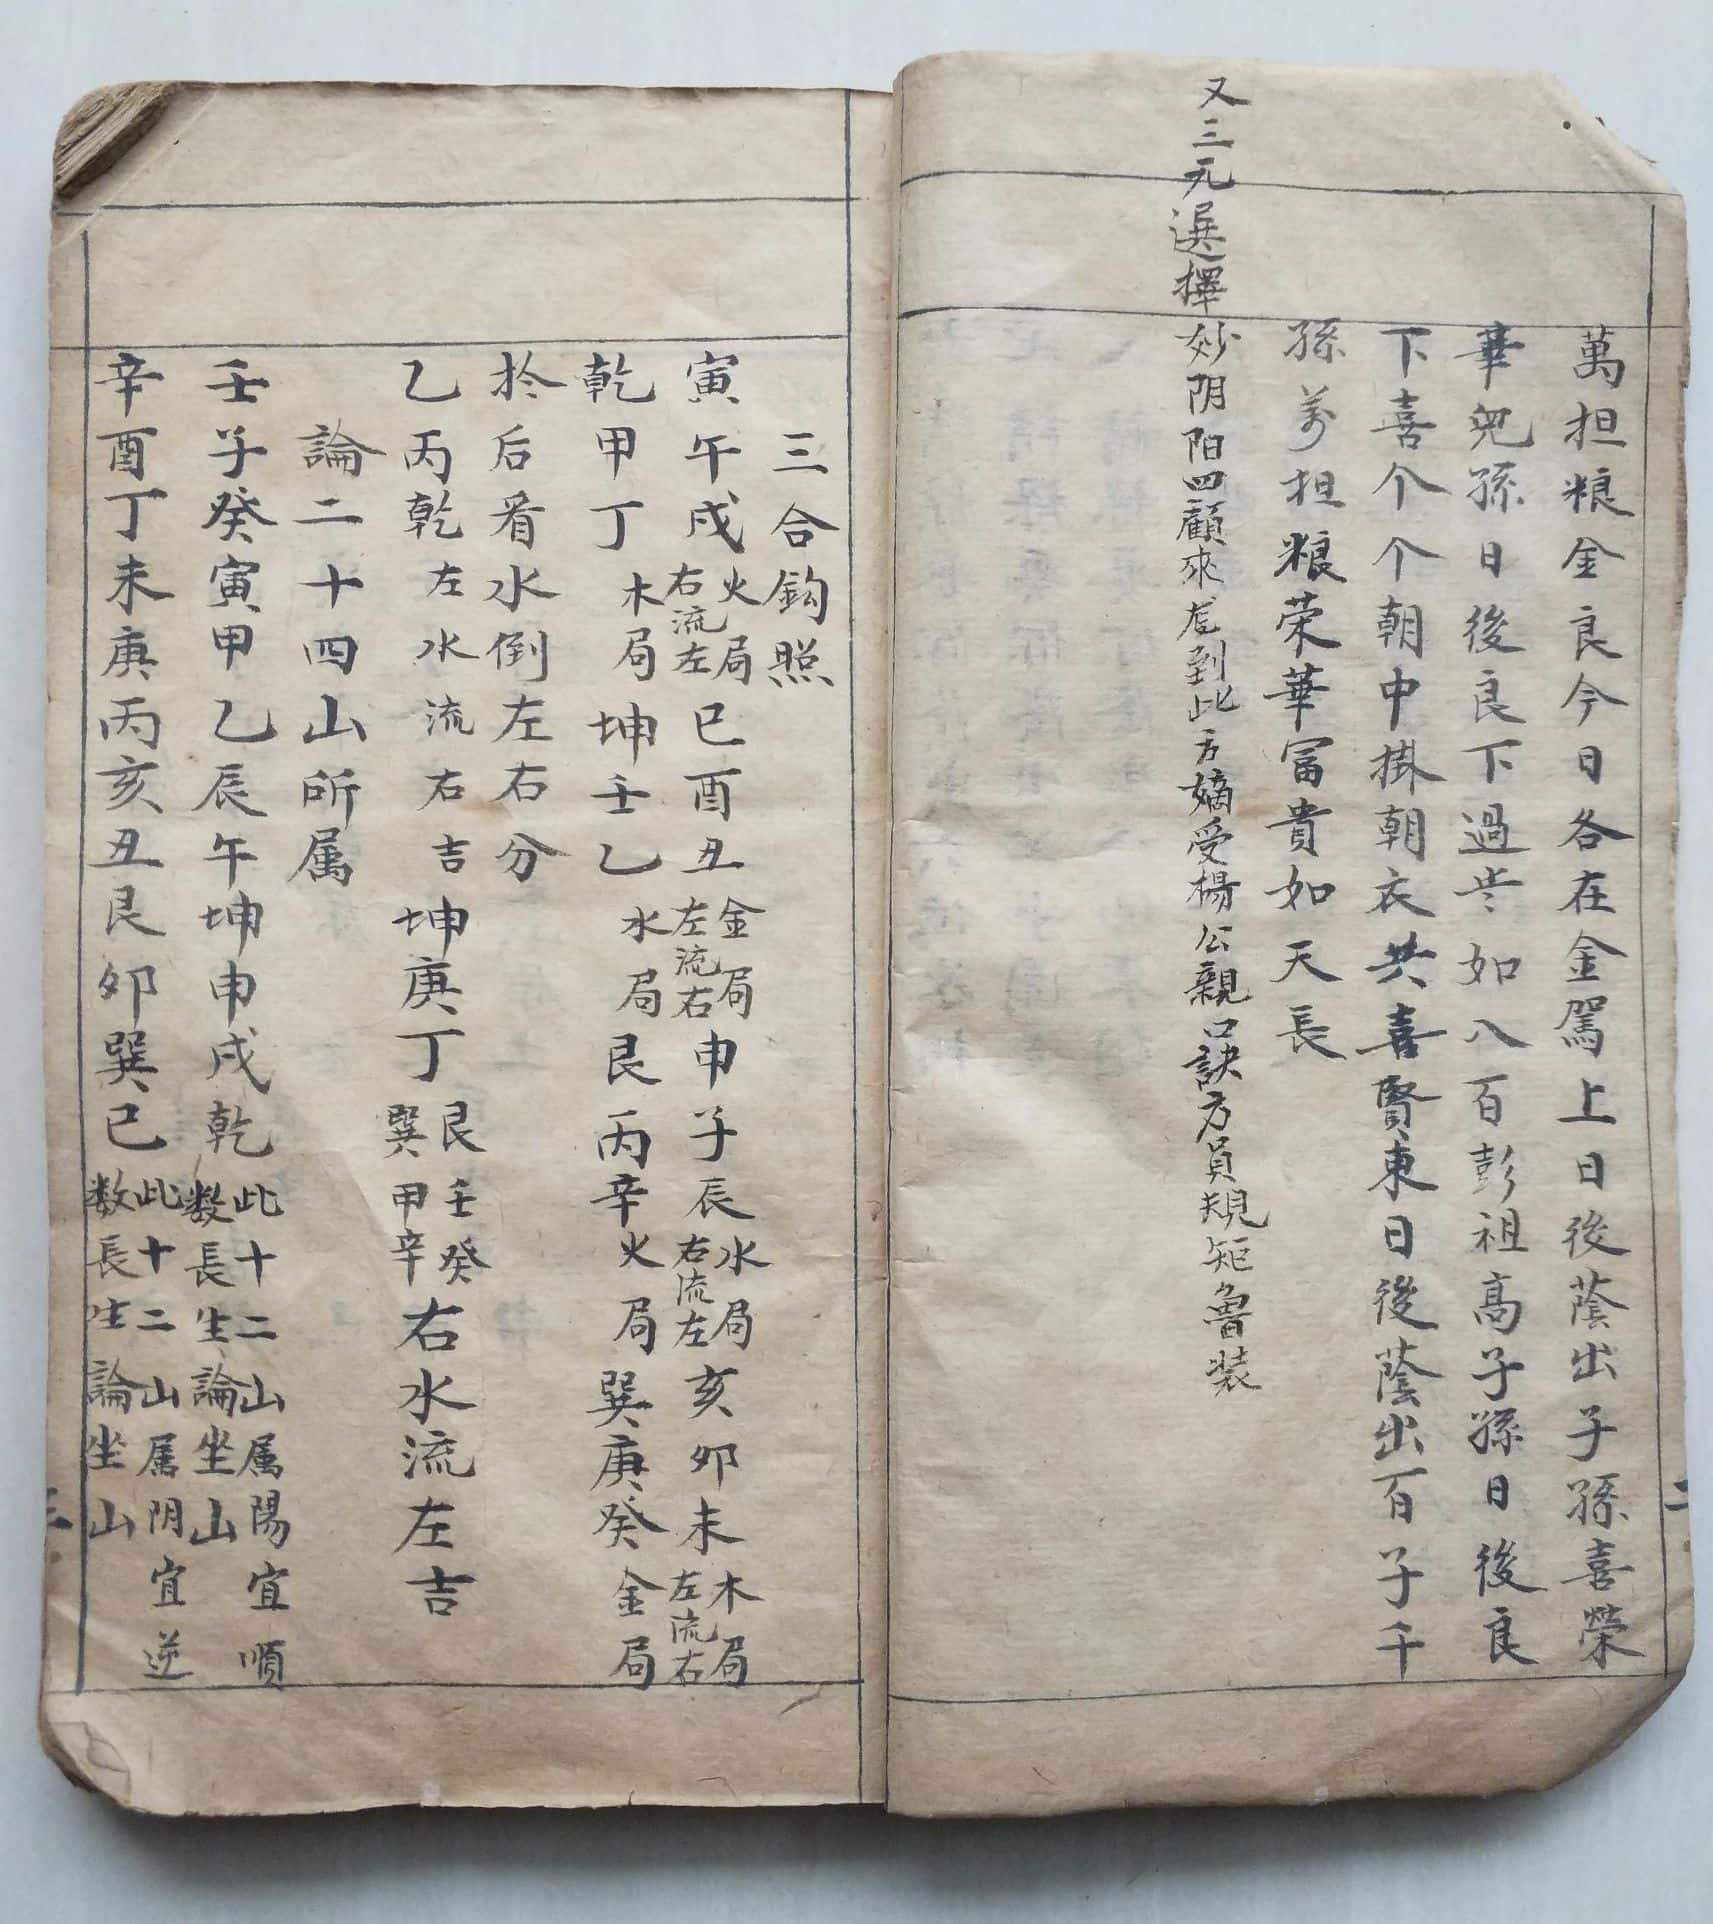 萬担粮金良今日各在金駕上日後蔭出子孫喜榮
華兒孫日後良下過岁如八百彭祖高子孫日後良
下喜个个朝中掛朝衣共喜賢東日後蔭出百子千
孫萬担粮荣華富貴如天長
又三元選擇妙阴阳四顧來龙到此方嫡受楊公親口訣方員規矩魯装
二
三合鈎照
寅午戌火局右流左巳酉丑金局左流右申子辰水局右流左亥卯未木局左流右
乾甲丁木局坤壬乙水局艮丙辛火局巽庚癸金局
扵后看水倒左右分
乙丙乾左水流右吉坤庚丁艮壬癸巽甲辛右水流左吉
論二十四山所属
壬子癸寅甲乙辰午坤申戌乾此十二山属陽宜順数長生論坐山
辛酉丁未庚丙亥丑艮卯巽巳此十二山属阴宜逆数長生論坐山
三